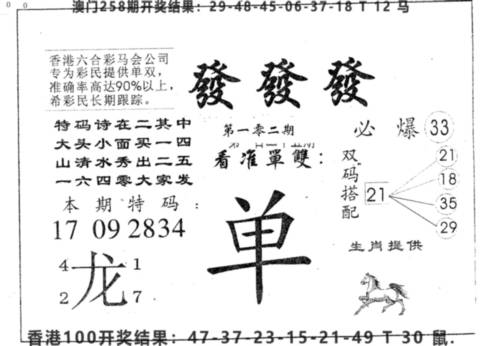 澳门258期开奖结果：29-48-45-06-37-18 T 12 马
香港六合彩马会公司
专为彩民提供单双，
准确率高达90%以上，
希彩民长期跟踪。
發 發 發
特码诗在二其中
大头小面买一四
山清水秀出二五
一六四零大家发
第一零二期
看准單雙：
单
必爆 33
双码搭配
21
21
18
35
29
本期特码：
17 09 28 34
龙
4 1
2 7
生肖提供
香港100开奖结果：47-37-23-15-21-49 T 30 鼠.